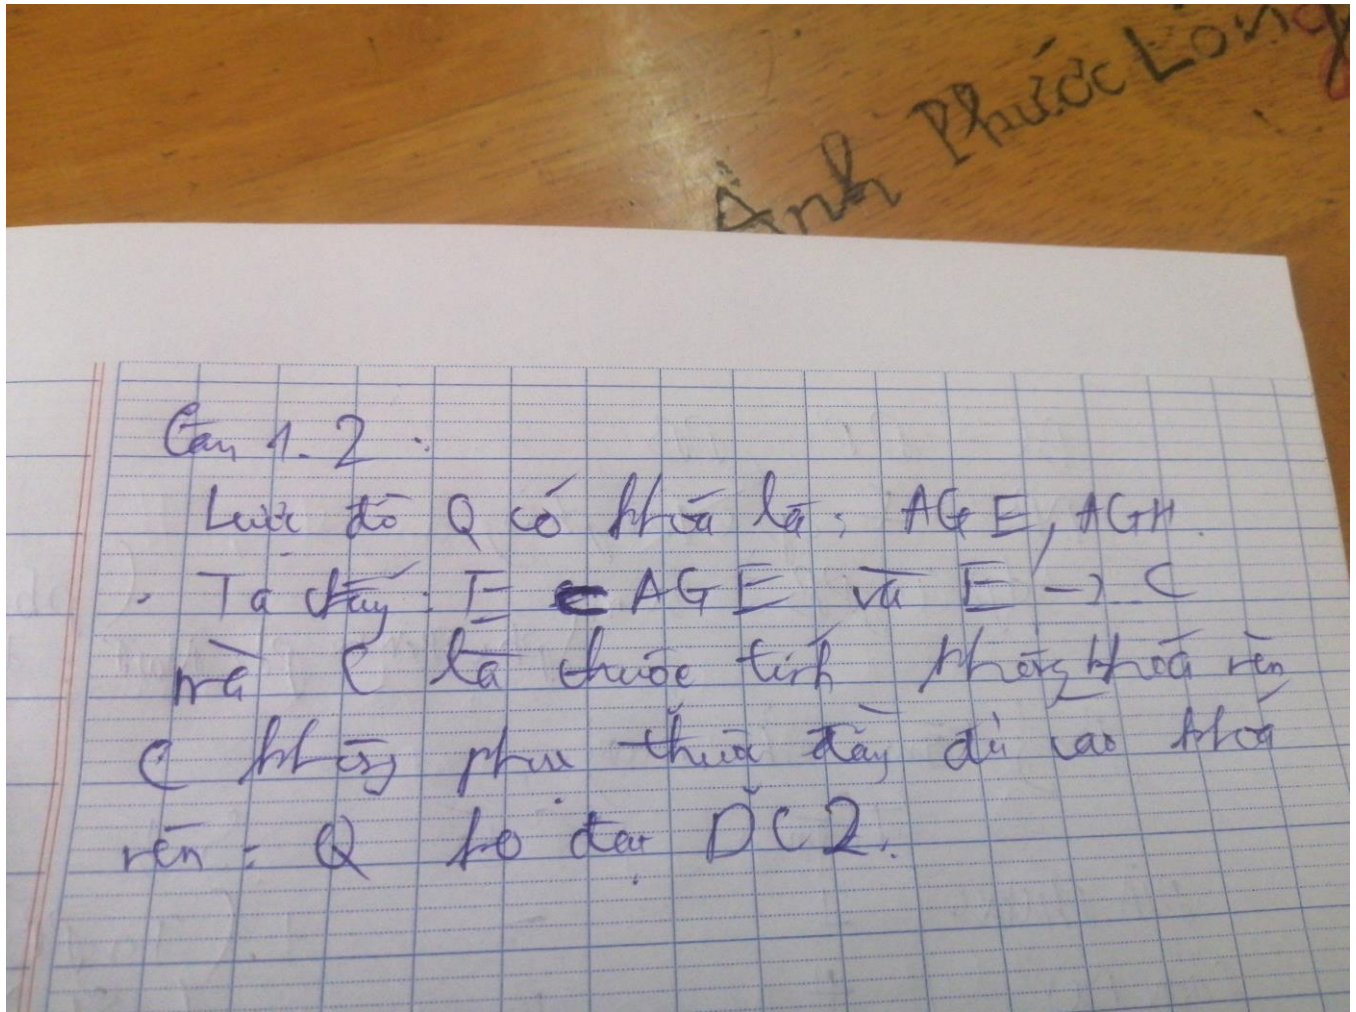 Ảnh Phước Long
Câu 1.2:
Lược đồ Q có khóa là: AGE, AGH.
. Ta thấy: E ⊂ AGE và E -> C
mà C là thuộc tính không khóa nên
C không phụ thuộc đầy đủ vào khoá
nên: Q ko đạt DC2.